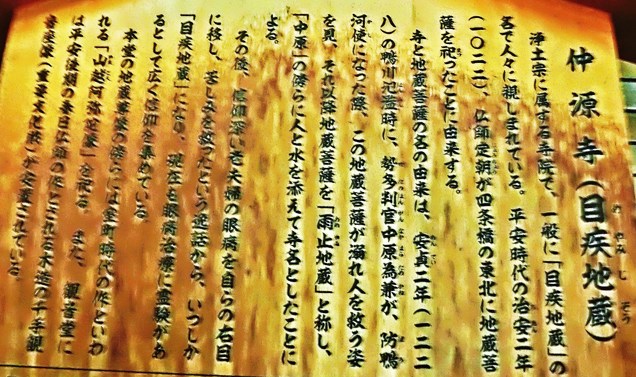 仲源寺(目疾地蔵)
めやみじぞう
浄土宗に属する寺院で、一般に「目疾地蔵」の
名で人々に親しまれている。平安時代の治安二年
(一〇二二)、仏師定朝が四条橋の東北に地蔵菩
薩を祀ったことに由来する。
寺と地蔵菩薩の名の由来は、安貞二年(一二二
八)の鴨川氾濫時に、勢多判官中原為兼が、防鴨
河使になった際、この地蔵菩薩が溺れ人を救う姿
を見、それ以降地蔵菩薩を「雨止地蔵」と称し、
「中原」の傍らに人と水を添えて寺名としたことに
よる。
その後、信仰深い老夫婦の眼病を自らの右目
に移し、苦しみを救ったという逸話から、いつしか
「目疾地蔵」になり、現在も眼病治療に霊験があ
るとして広く信仰を集めている。
本堂の地蔵菩薩像の傍らには室町時代の作といわ
れる「山越阿弥陀像」を祀る。また、観音堂に
は平安後期の春日仏師の作とされる木造の千手観
音座像(重要文化財)が安置されている。